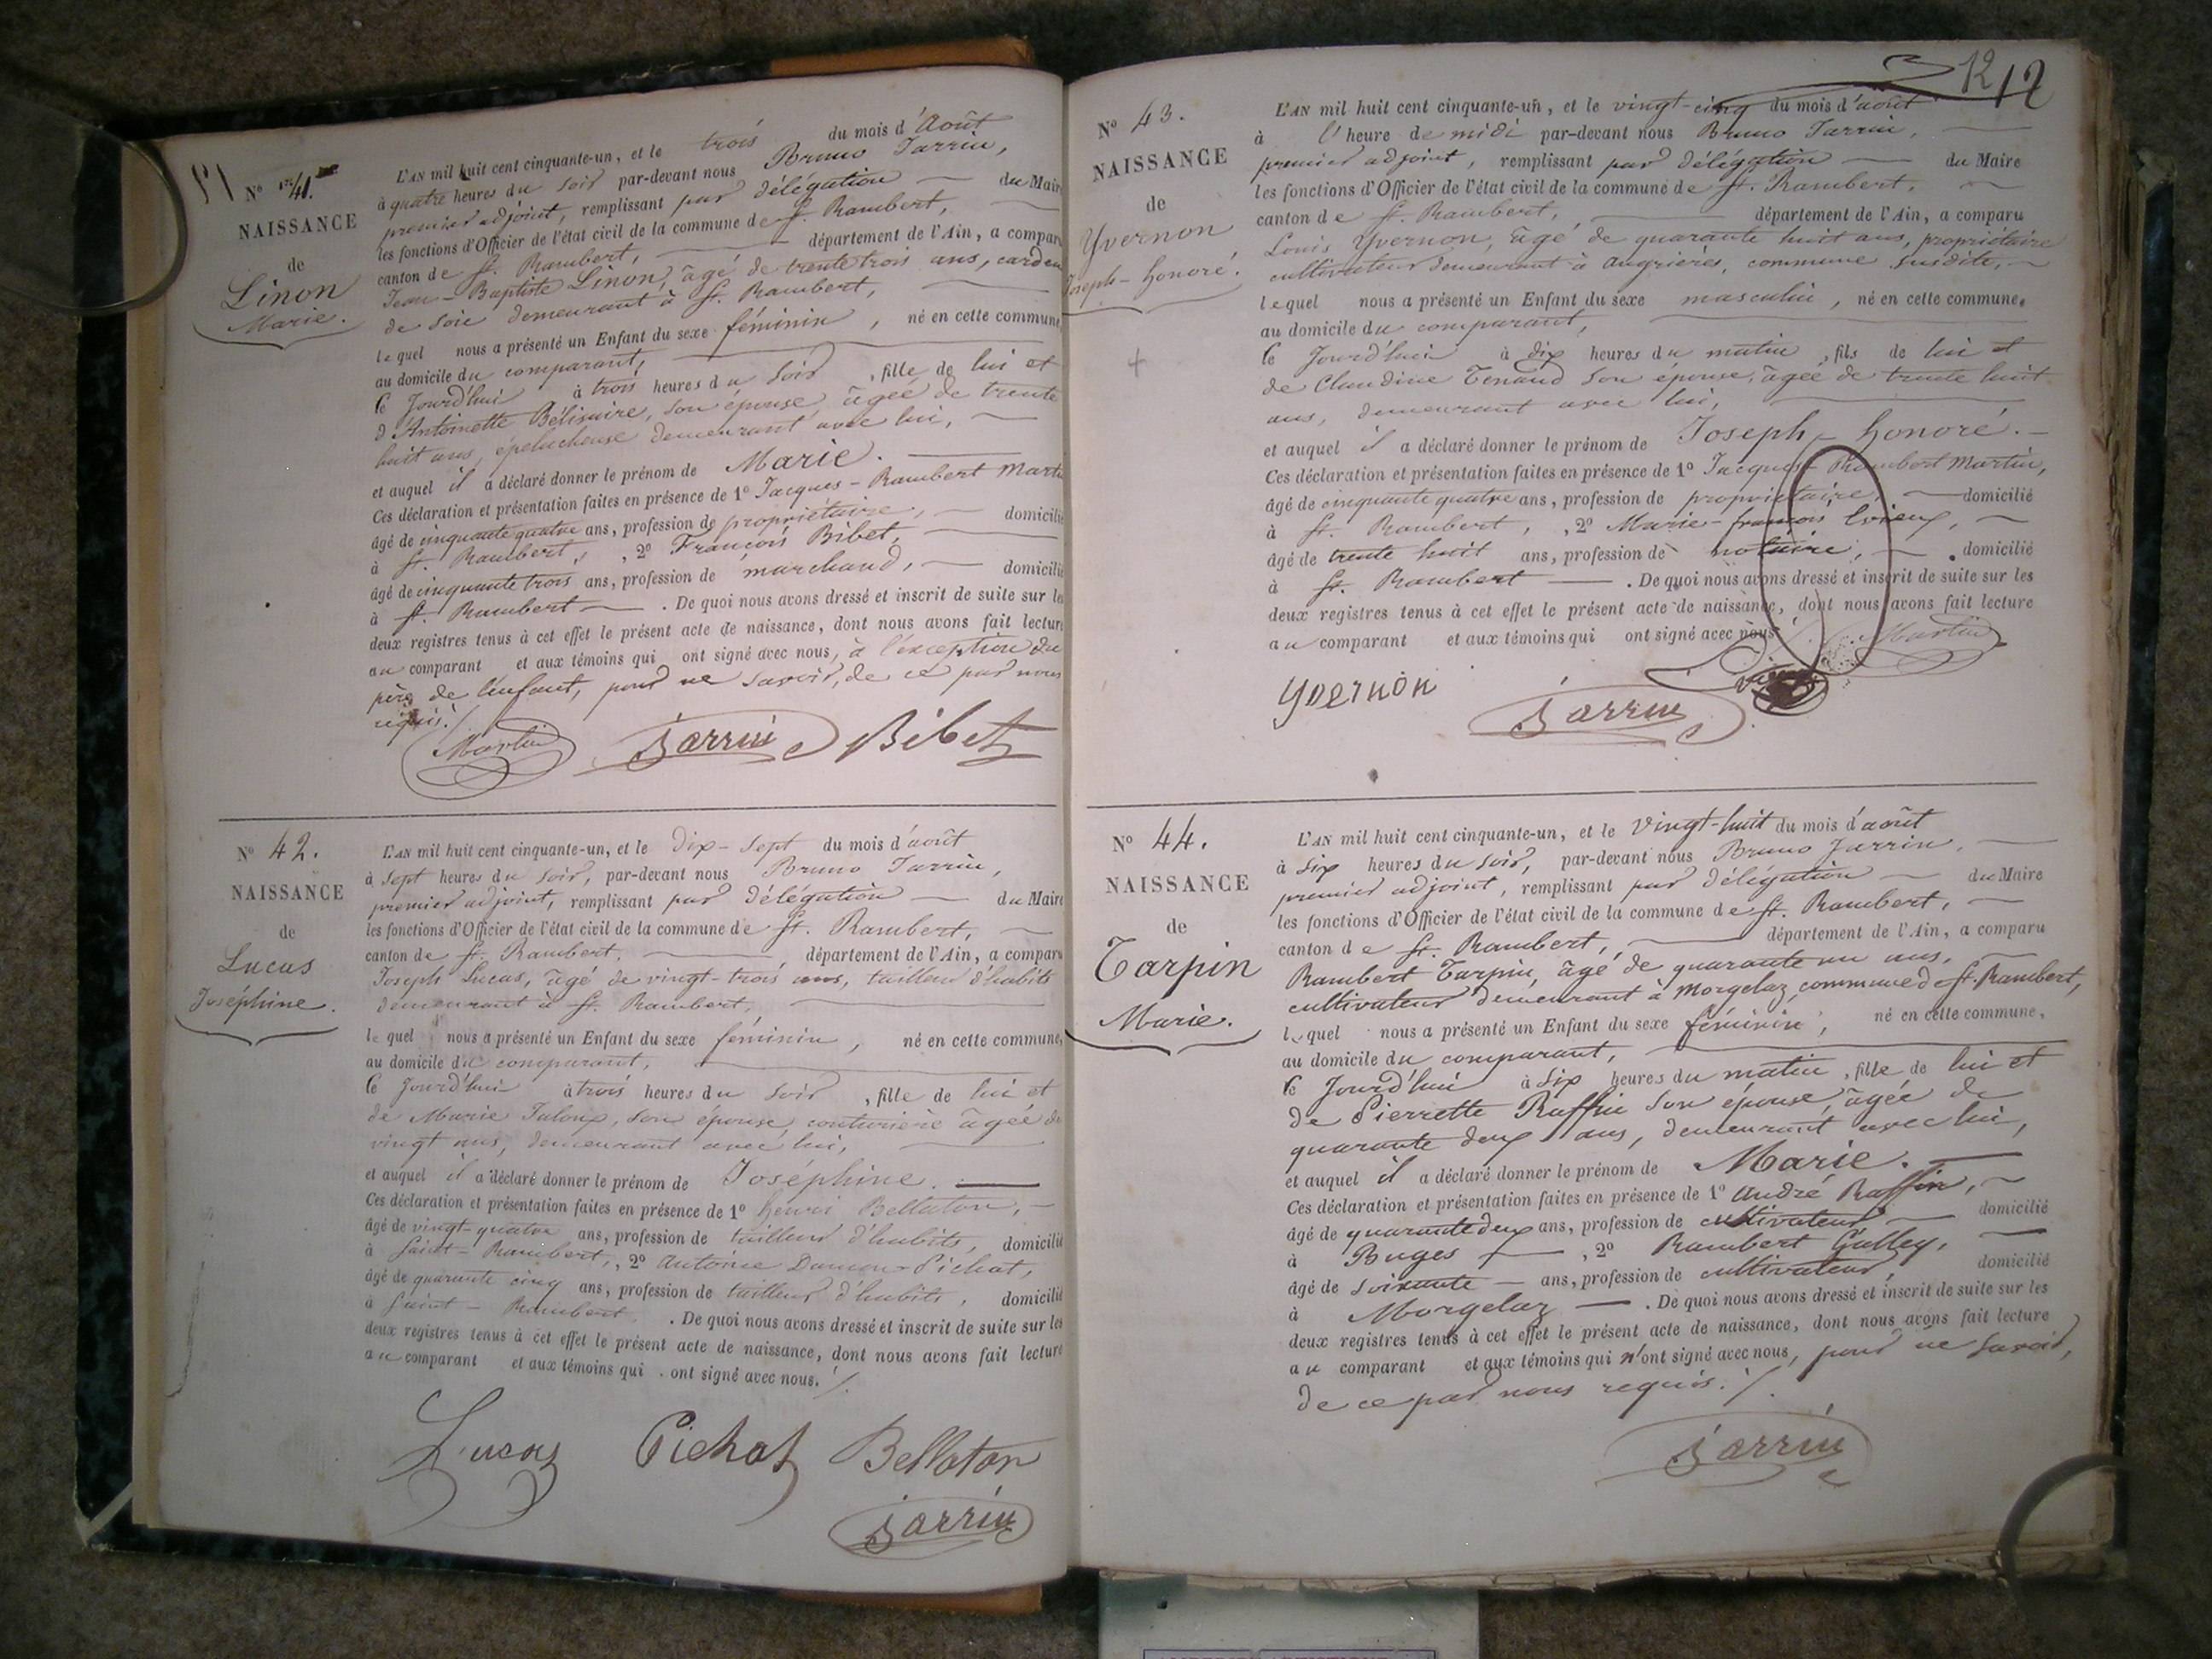 Nº 41.
NAISSANCE
de
Linon
Marie.
L'AN mil huit cent cinquante-un, et le trois du mois d'Août
à quatre heures du soir par-devant nous Bruno Jarrin,
premier adjoint, remplissant par délégation du Maire
les fonctions d'Officier de l'état civil de la commune de St. Rambert,
canton de St. Rambert, département de l'Ain, a comparu
Jean-Baptiste Linon, âgé de trente trois ans, cardeur
de soie demeurant à St. Rambert,
lequel nous a présenté un Enfant du sexe féminin, né en cette commune
au domicile du comparant,
ce Jourd'hui à trois heures du soir, fille de lui et
d'Antoinette Bélisaire, son épouse âgée de trente
huit ans, éplucheuse demeurant avec lui,
et auquel il a déclaré donner le prénom de Marie.
Ces déclaration et présentation faites en présence de 1º Jacques-Rambert Martin
âgé de cinquante quatre ans, profession de propriétaire, domicilié
à St. Rambert, 2º François Bibet,
âgé de cinquante trois ans, profession de marchand, domicilié
à St. Rambert. De quoi nous avons dressé et inscrit de suite sur les
deux registres tenus à cet effet le présent acte de naissance, dont nous avons fait lecture
au comparant et aux témoins qui ont signé avec nous, à l'exception du
père de l'enfant, pour ne savoir, de ce par nous
requis./
Martin Jarrin Bibet
Nº 42.
NAISSANCE
de
Lucas
Joséphine.
L'AN mil huit cent cinquante-un, et le dix-sept du mois d'août
à sept heures du soir, par-devant nous Bruno Jarrin,
premier adjoint, remplissant par délégation du Maire
les fonctions d'Officier de l'état civil de la commune de St. Rambert,
canton de St. Rambert, département de l'Ain, a comparu
Joseph Lucas, âgé de vingt-trois ans, tailleur d'habits
demeurant à St. Rambert,
lequel nous a présenté un Enfant du sexe féminin, né en cette commune,
au domicile du comparant,
ce Jourd'hui à trois heures du soir, fille de lui et
de Marie son épouse, couturière âgée de
vingt ans, demeurant avec lui,
et auquel il a déclaré donner le prénom de Joséphine.
Ces déclaration et présentation faites en présence de 1º henri Bellaton,
âgé de vingt-quatre ans, profession de tailleur d'habits, domicilié
à Saint-Rambert, 2º Antoine Pichat,
âgé de quarante cinq ans, profession de tailleur d'habits, domicilié
à Saint-Rambert. De quoi nous avons dressé et inscrit de suite sur les
deux registres tenus à cet effet le présent acte de naissance, dont nous avons fait lecture
au comparant et aux témoins qui ont signé avec nous./.
Lucas Pichat Bellaton
Jarrin
12 12
Nº 43.
NAISSANCE
de
Yvernon
Joseph-honoré.
L'AN mil huit cent cinquante-un, et le vingt-cinq du mois d'août
à l'heure de midi par-devant nous Bruno Jarrin,
premier adjoint, remplissant par délégation du Maire
les fonctions d'Officier de l'état civil de la commune de St. Rambert,
canton de St. Rambert, département de l'Ain, a comparu
Louis Yvernon, âgé de quarante huit ans, propriétaire
cultivateur demeurant à angrières, commune susdite,
lequel nous a présenté un Enfant du sexe masculin, né en cette commune,
au domicile du comparant,
ce Jourd'hui à dix heures du matin, fils de lui et
de Claudine Tenand son épouse, âgée de trente huit
ans, demeurant avec lui,
et auquel il a déclaré donner le prénom de Joseph-honoré.
Ces déclaration et présentation faites en présence de 1º Jacques-Rambert Martin,
âgé de cinquante quatre ans, profession de propriétaire, domicilié
à St. Rambert, 2º Marie-françois
âgé de trente huit ans, profession de notaire, domicilié
à St. Rambert. De quoi nous avons dressé et inscrit de suite sur les
deux registres tenus à cet effet le présent acte de naissance, dont nous avons fait lecture
au comparant et aux témoins qui ont signé avec nous./.
Martin
Yvernon Jarrin
Nº 44.
NAISSANCE
de
Tarpin
Marie.
L'AN mil huit cent cinquante-un, et le vingt-huit du mois d'août
à six heures du soir, par-devant nous Bruno Jarrin,
premier adjoint, remplissant par délégation du Maire
les fonctions d'Officier de l'état civil de la commune de St. Rambert,
canton de St. Rambert, département de l'Ain, a comparu
Rambert Tarpin, âgé de quarante un ans,
cultivateur demeurant à Morgelaz, commune de St. Rambert,
lequel nous a présenté un Enfant du sexe féminin, né en cette commune,
au domicile du comparant,
ce Jourd'hui à six heures du matin, fille de lui et
de Pierrette Raffin son épouse, âgée de
quarante deux ans, demeurant avec lui,
et auquel il a déclaré donner le prénom de Marie.
Ces déclaration et présentation faites en présence de 1º André Raffin,
âgé de quarante deux ans, profession de cultivateur domicilié
à Buges, 2º Rambert Galley,
âgé de soixante ans, profession de cultivateur, domicilié
à Morgelaz. De quoi nous avons dressé et inscrit de suite sur les
deux registres tenus à cet effet le présent acte de naissance, dont nous avons fait lecture
au comparant et aux témoins qui n'ont signé avec nous, pour ne savoir,
de ce par nous requis./.
Jarrin